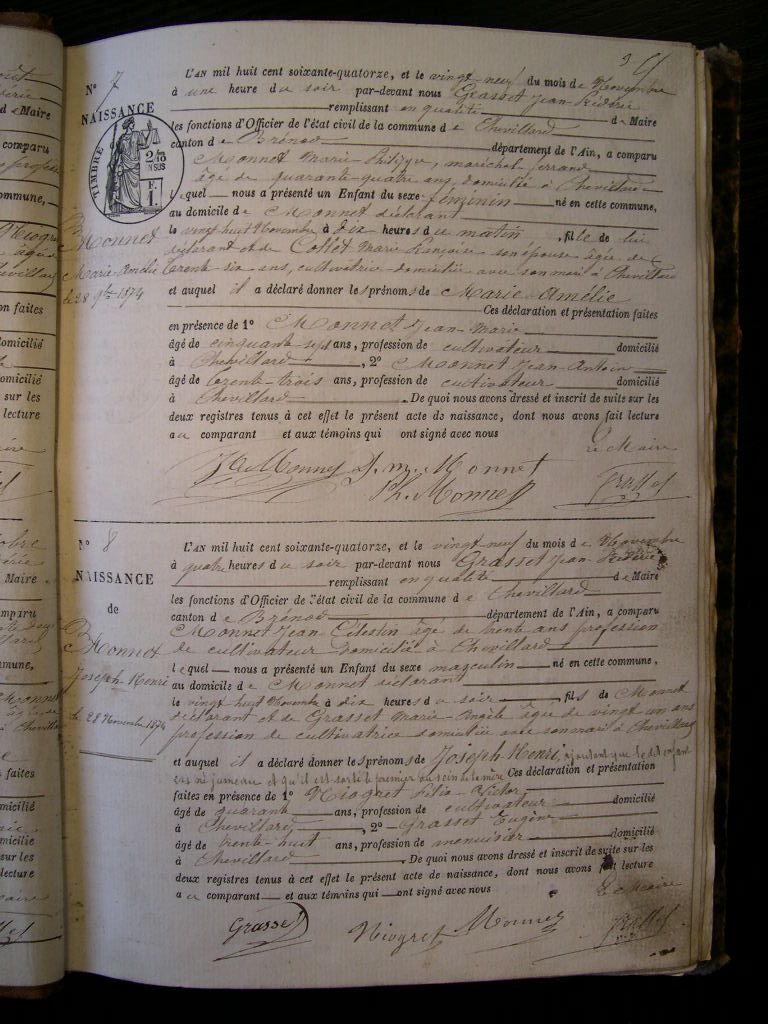 N° 7
NAISSANCE
TIMBRE
2/10 EN SUS
F. 1.
Monnet
Marie Amélie
le 28 9bre 1874
L'AN mil huit cent soixante-quatorze, et le vingt-neuf du mois de Novembre
à une heure du soir par-devant nous Grasset Jean
remplissant en qualité de Maire
les fonctions d'Officier de l'état civil de la commune de Chevillard
canton de Brénod département de l'Ain, a comparu
Monnet Marie Philippe, maréchal ferrand
âgé de quarante-quatre ans, domicilié à Chevillard
lequel nous a présenté un Enfant du sexe féminin né en cette commune,
au domicile de Monnet déclarant
le vingt huit Novembre à dix heures du matin, fille de lui
déclarant et de Collet Marie Françoise son épouse âgée de
trente-six ans, cultivatrice domiciliée avec son mari à Chevillard
et auquel il a déclaré donner les prénoms de Marie Amélie
Ces déclaration et présentation faites
en présence de 1° Monnet Jean Marie
âgé de cinquante sept ans, profession de cultivateur domicilié
à Chevillard, 2° Monnet Jean Antoine
âgé de trente-trois ans, profession de cultivateur domicilié
à Chevillard. De quoi nous avons dressé et inscrit de suite sur les
deux registres tenus à cet effet le présent acte de naissance, dont nous avons fait lecture
au comparant et aux témoins qui ont signé avec nous
Le Maire
Monnet J. m. Monnet
Ph. Monnet Grasset
N° 8
NAISSANCE
de
Monnet
Joseph Henri
le 28 Novembre 1874
L'AN mil huit cent soixante-quatorze, et le vingt neuf du mois de Novembre
à quatre heures du soir par-devant nous Grasset Jean
remplissant en qualité de Maire
les fonctions d'Officier de l'état civil de la commune de Chevillard
canton de Brénod département de l'Ain, a comparu
Monnet Jean Célestin âgé de trente ans profession
de cultivateur domicilié à Chevillard
lequel nous a présenté un Enfant du sexe masculin né en cette commune,
au domicile de Monnet déclarant
le vingt huit Novembre à dix heures du soir, fils de Monnet
déclarant et de Grasset Marie âgée de vingt un ans
profession de cultivatrice domiciliée avec son mari à Chevillard
et auquel il a déclaré donner les prénoms de Joseph Henri, ajoutant que le dit enfant
est né jumeau et qu'il est sorti le premier du sein de la mère Ces déclaration et présentation
faites en présence de 1° Niogret Félix Victor
âgé de quarante ans, profession de cultivateur domicilié
à Chevillard, 2° Grasset Eugène
âgé de trente-huit ans, profession de menuisier domicilié
à Chevillard. De quoi nous avons dressé et inscrit de suite sur les
deux registres tenus à cet effet le présent acte de naissance, dont nous avons fait lecture
au comparant et aux témoins qui ont signé avec nous
Le Maire
Grasset Niogret Monnet Grasset